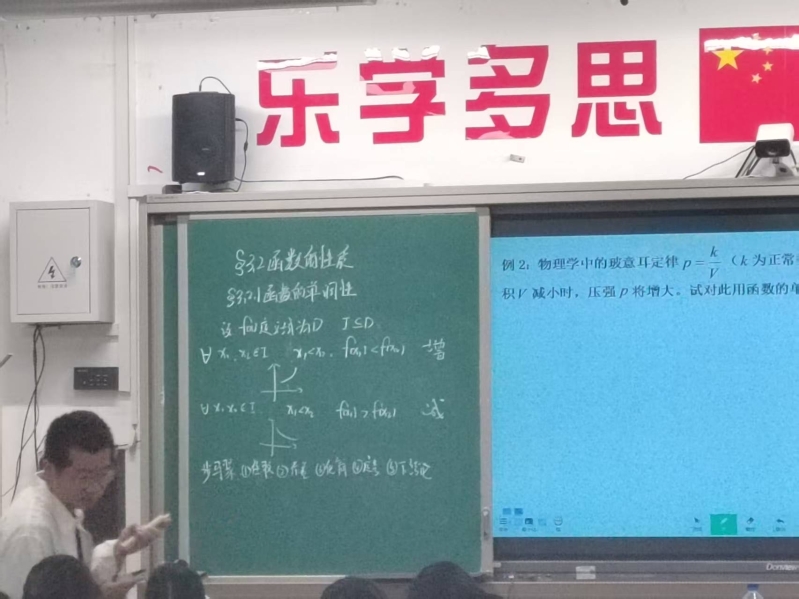 乐学多思
§3.2 函数的性质
§3.2.1 函数的单调性
设 f(x)定义域为D I⊆D
∀ x₁, x₂∈I x₁<x₂, f(x₁)<f(x₂) 增
∀ x₁, x₂∈I x₁<x₂ f(x₁)>f(x₂) 减
步骤 ①取数 ②作差 ③变形 ④定号 ⑤下结论
例 2：物理学中的玻意耳定律 p = k/V （k 为正常
积 V 减小时，压强 p 将增大。试对此用函数的单